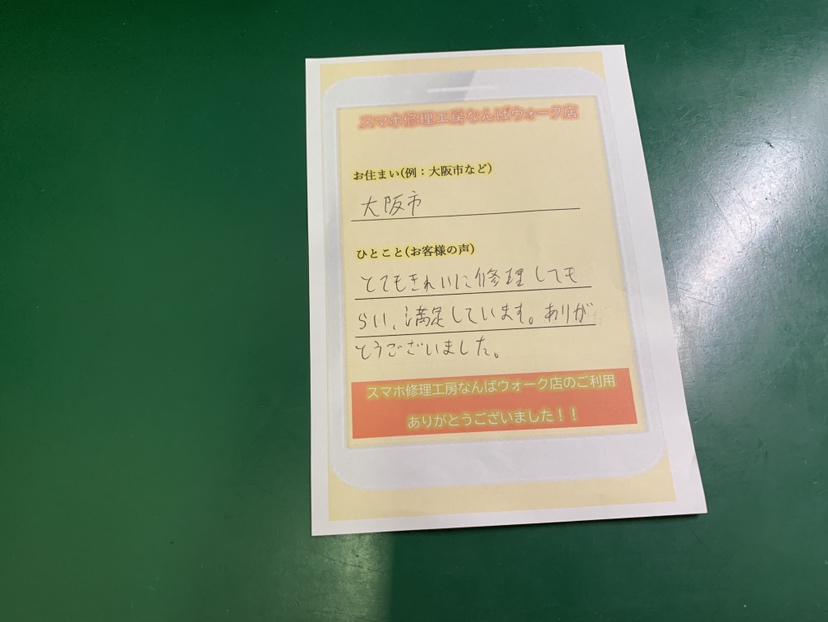 スマホ修理工房なんばウォーク店
お住まい(例：大阪市など)
大阪市
ひとこと(お客様の声)
とてもきれいに修理しても
らい、満足しています。ありが
とうございました。
スマホ修理工房なんばウォーク店のご利用
ありがとうございました！！